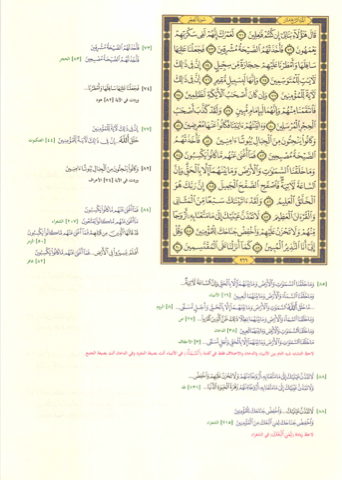 سورة الحجر
قَالَ هَٰٓؤُلَآءِ بَنَاتِىٓ إِن كُنتُمْ فَٰعِلِينَ ٧١ لَعَمْرُكَ إِنَّهُمْ لَفِى سَكْرَتِهِمْ
يَعْمَهُونَ ٧٢ فَأَخَذَتْهُمُ ٱلصَّيْحَةُ مُشْرِقِينَ ٧٣ فَجَعَلْنَا عَٰلِيَهَا
سَافِلَهَا وَأَمْطَرْنَا عَلَيْهِمْ حِجَارَةً مِّن سِجِّيلٍ ٧٤ إِنَّ فِى ذَٰلِكَ
لَءَايَٰتٍ لِّلْمُتَوَسِّمِينَ ٧٥ وَإِنَّهَا لَبِسَبِيلٍ مُّقِيمٍ ٧٦ إِنَّ فِى ذَٰلِكَ
لَءَايَةً لِّلْمُؤْمِنِينَ ٧٧ وَإِن كَانَ أَصْحَٰبُ ٱلْأَيْكَةِ لَظَٰلِمِينَ ٧٨
فَٱنتَقَمْنَا مِنْهُمْ وَإِنَّهُمَا لَبِإِمَامٍ مُّبِينٍ ٧٩ وَلَقَدْ كَذَّبَ أَصْحَٰبُ
ٱلْحِجْرِ ٱلْمُرْسَلِينَ ٨٠ وَءَاتَيْنَٰهُمْ ءَايَٰتِنَا فَكَانُوا۟ عَنْهَا مُعْرِضِينَ ٨١
وَكَانُوا۟ يَنْحِتُونَ مِنَ ٱلْجِبَالِ بُيُوتًا ءَامِنِينَ ٨٢ فَأَخَذَتْهُمُ
ٱلصَّيْحَةُ مُصْبِحِينَ ٨٣ فَمَآ أَغْنَىٰ عَنْهُم مَّا كَانُوا۟ يَكْسِبُونَ ٨٤
وَمَا خَلَقْنَا ٱلسَّمَٰوَٰتِ وَٱلْأَرْضَ وَمَا بَيْنَهُمَآ إِلَّا بِٱلْحَقِّ وَإِنَّ
ٱلسَّاعَةَ لَءَاتِيَةٌ فَٱصْفَحِ ٱلصَّفْحَ ٱلْجَمِيلَ ٨٥ إِنَّ رَبَّكَ هُوَ
ٱلْخَلَّٰقُ ٱلْعَلِيمُ ٨٦ وَلَقَدْ ءَاتَيْنَٰكَ سَبْعًا مِّنَ ٱلْمَثَانِى
وَٱلْقُرْءَانَ ٱلْعَظِيمَ ٨٧ لَا تَمُدَّنَّ عَيْنَيْكَ إِلَىٰ مَا مَتَّعْنَا بِهِۦٓ أَزْوَٰجًا
مِّنْهُمْ وَلَا تَحْزَنْ عَلَيْهِمْ وَٱخْفِضْ جَنَاحَكَ لِلْمُؤْمِنِينَ ٨٨ وَقُلْ
إِنِّىٓ أَنَا ٱلنَّذِيرُ ٱلْمُبِينُ ٨٩ كَمَآ أَنزَلْنَا عَلَى ٱلْمُقْتَسِمِينَ ٩٠
٢٦٦
[٧٣] فَأَخَذَتْهُمُ ٱلصَّيْحَةُ مُشْرِقِينَ
فَأَخَذَتْهُمُ ٱلصَّيْحَةُ مُصْبِحِينَ [٨٣] الحجر
[٧٤] فَجَعَلْنَا عَٰلِيَهَا سَافِلَهَا وَأَمْطَرْنَا..
بينت في الآية [٨٢] هود
[٧٧] إِنَّ فِى ذَٰلِكَ لَءَايَةً لِّلْمُؤْمِنِينَ
خَلَقَ ٱللَّهُ.. إِنَّ فِى ذَٰلِكَ لَءَايَةً لِّلْمُؤْمِنِينَ [٤٤] العنكبوت
[٨٢] وَكَانُوا۟ يَنْحِتُونَ مِنَ ٱلْجِبَالِ بُيُوتًا ءَامِنِينَ
بينت في الآية [٧٤] الأعراف
[٨٤] فَمَآ أَغْنَىٰ عَنْهُم مَّا كَانُوا۟ يَكْسِبُونَ
مَآ أَغْنَىٰ عَنْهُم مَّا كَانُوا۟ يُمَتَّعُونَ [٢٠٧] الشعراء
قَدْ قَالَهَا ٱلَّذِينَ مِن قَبْلِهِمْ فَمَآ أَغْنَىٰ عَنْهُم مَّا كَانُوا۟ يَكْسِبُونَ
[٥٠] الزمر
أَفَلَمْ يَسِيرُوا۟ فِى ٱلْأَرْضِ.. فَمَآ أَغْنَىٰ عَنْهُم مَّا كَانُوا۟ يَكْسِبُونَ
[٨٢] غافر
[٨٥] وَمَا خَلَقْنَا ٱلسَّمَٰوَٰتِ وَٱلْأَرْضَ وَمَا بَيْنَهُمَآ إِلَّا بِٱلْحَقِّ وَإِنَّ ٱلسَّاعَةَ لَءَاتِيَةٌ..
وَمَا خَلَقْنَا ٱلسَّمَآءَ وَٱلْأَرْضَ وَمَا بَيْنَهُمَا لَٰعِبِينَ [١٦] الأنبياء
.. مَّا خَلَقَ ٱللَّهُ ٱلسَّمَٰوَٰتِ وَٱلْأَرْضَ وَمَا بَيْنَهُمَآ إِلَّا بِٱلْحَقِّ وَأَجَلٍ مُّسَمًّى.. [٨] الروم
وَمَا خَلَقْنَا ٱلسَّمَآءَ وَٱلْأَرْضَ وَمَا بَيْنَهُمَا بَٰطِلًا ذَٰلِكَ ظَنُّ ٱلَّذِينَ كَفَرُوا۟.. [٢٧] ص
وَمَا خَلَقْنَا ٱلسَّمَٰوَٰتِ وَٱلْأَرْضَ وَمَا بَيْنَهُمَا لَٰعِبِينَ [٣٨] الدخان
مَا خَلَقْنَا ٱلسَّمَٰوَٰتِ وَٱلْأَرْضَ وَمَا بَيْنَهُمَآ إِلَّا بِٱلْحَقِّ وَأَجَلٍ مُّسَمًّى.. [٣] الأحقاف
[٨٨] لَا تَمُدَّنَّ عَيْنَيْكَ إِلَىٰ مَا مَتَّعْنَا بِهِۦٓ أَزْوَٰجًا مِّنْهُمْ وَلَا تَحْزَنْ عَلَيْهِمْ وَٱخْفِضْ..
وَلَا تَمُدَّنَّ عَيْنَيْكَ إِلَىٰ مَا مَتَّعْنَا بِهِۦٓ أَزْوَٰجًا مِّنْهُمْ زَهْرَةَ ٱلْحَيَوٰةِ ٱلدُّنْيَا.. [١٣١] طه
[٨٨] لَا تَمُدَّنَّ عَيْنَيْكَ.. وَٱخْفِضْ جَنَاحَكَ لِلْمُؤْمِنِينَ
وَٱخْفِضْ جَنَاحَكَ لِمَنِ ٱتَّبَعَكَ مِنَ ٱلْمُؤْمِنِينَ [٢١٥] الشعراء